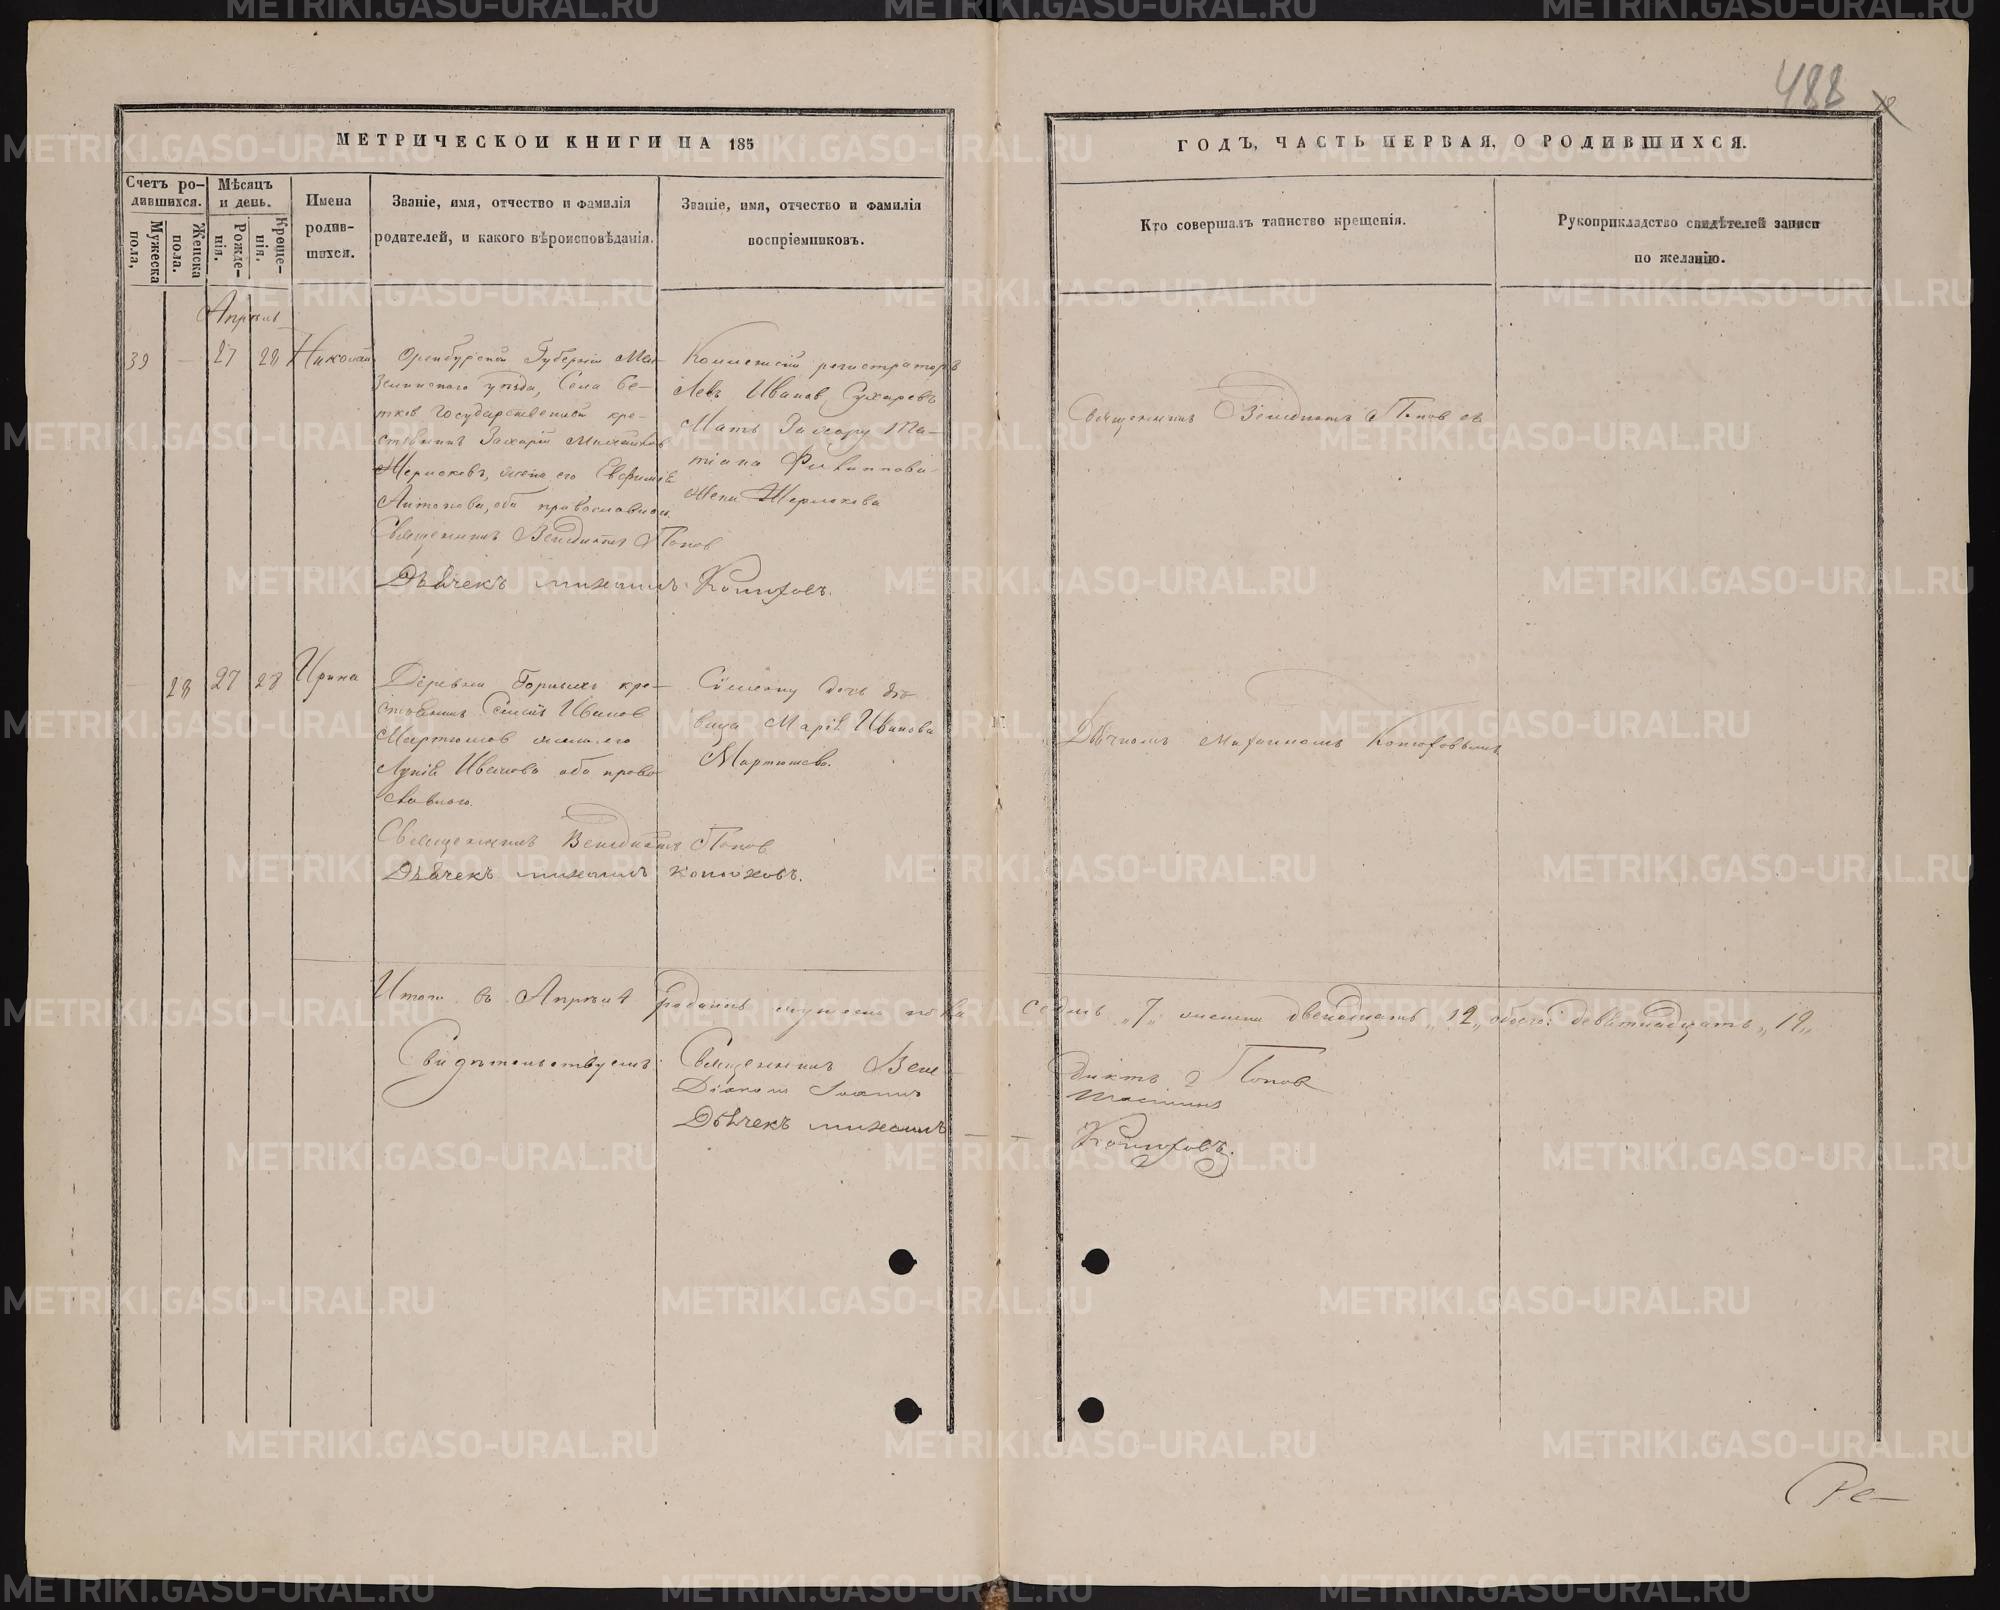 488
МЕТРИЧЕСКОИ КНИГИ НА 185
ГОДЪ, ЧАСТЬ ПЕРВАЯ, О РОДИВШИХСЯ.
Счетъ ро-
дившихся.
Мужеска пола,
Женска пола.
Мѣсяцъ
и день.
Рожде-
нія.
Креще-
нія.
Имена
родив-
шихся.
Званіе, имя, отчество и фамилія
родителей, и какого вѣроисповѣданія.
Званіе, имя, отчество и фамилія
воспріемниковъ.
Кто совершалъ таинство крещенія.
Рукоприкладство свидѣтелей записи
по желанію.
Апрѣль
39 — 27 28 Николай
Оренбургской Губерніи Мен-
зелинскаго уѣзда, Села Бе-
Государственной кре-
стьянинъ Захарій
жена его Евфимія
Антонова, оба православнои.
Священникъ Венедиктъ Попов
Дьячекъ михаилъ Конюховъ.
регистраторъ
Левъ Иванов Сухаревъ
Мать Та-
тіана Филиппова
Священникъ Венедиктъ Попов
— 28 27 28 Ирина
Деревни Горныхъ кре-
стьянинъ Иванов
Мартюшов жена его
Иванова оба право-
славного.
Священникъ Венедиктъ Попов
Дьячекъ михаилъ конюховъ.
дочь дѣ-
вица Марія Иванова
Мартюшева.
Дьячкомъ Михаиломъ Конюховымъ
Итого въ Апрѣлѣ мужеска пола седмь „7„ женска двенадцать „12„ обоего: девятнадцать „19„
Свидѣтельствуемъ: Священникъ Вене
диктъ Попов
Діаконъ Іоаннъ
Дьячекъ михаилъ — — Конюховъ.
Ре-
METRIKI.GASO-URAL.RU